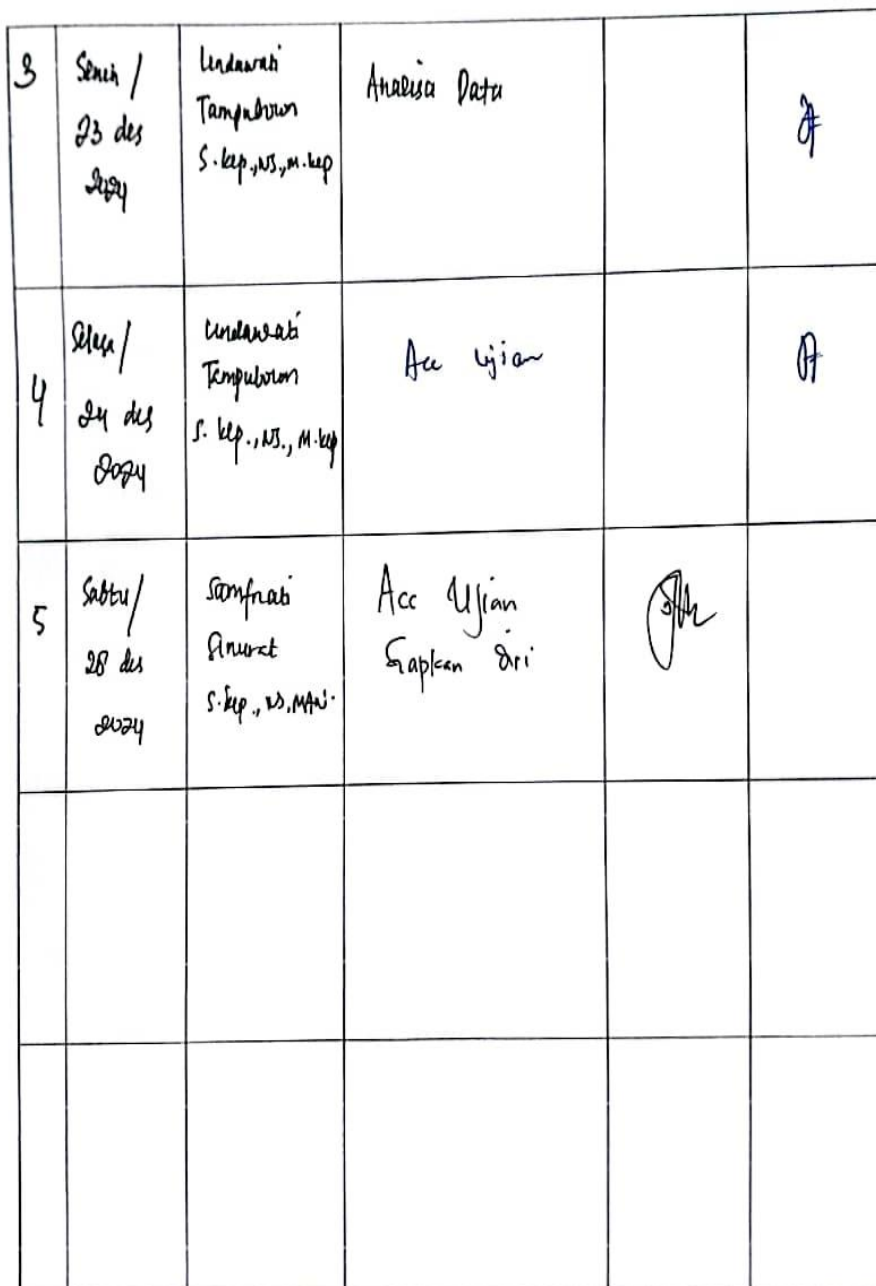 3
Senin /
23 des
2024
Lindawati
Tampubolon
S.kep.,NS.,M.kep
Analisa Data
4
Selasa /
24 des
2024
Lindawati
Tampubolon
S. kep., NS., M.kep
Acc Ujian
5
Sabtu /
28 des
2024
Samfriati
Sinurat
S.kep., NS, MAN.
Acc Ujian
Siapkan diri